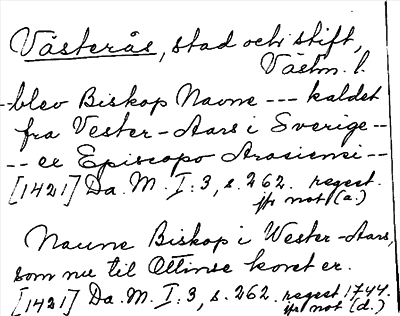 Västerås, stad och stift,
Västm. l.
--blev Biskop Navne --- kaldet
fra Vester-Aars i Sverige --
-- ex Episcopo Arosiensi --
[1421] Da. M. I: 3, s. 262. regest.
jfr not (a.)
Navne Biskop i Wester-Aars,
som nu til Ottinse koret er.
[1421] Da. M. I: 3, s. 262. regest 1744.
jfr not (d.)